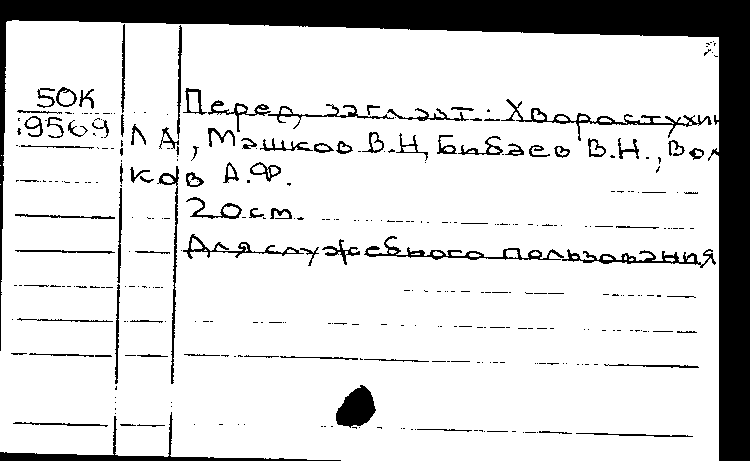 50К
Перед загл авт: Хворостухин
9569 ЛА, Машков В.Н, Бибаев В.Н., Вол
ков А.Ф.
20 ст.
Для служебного пользования